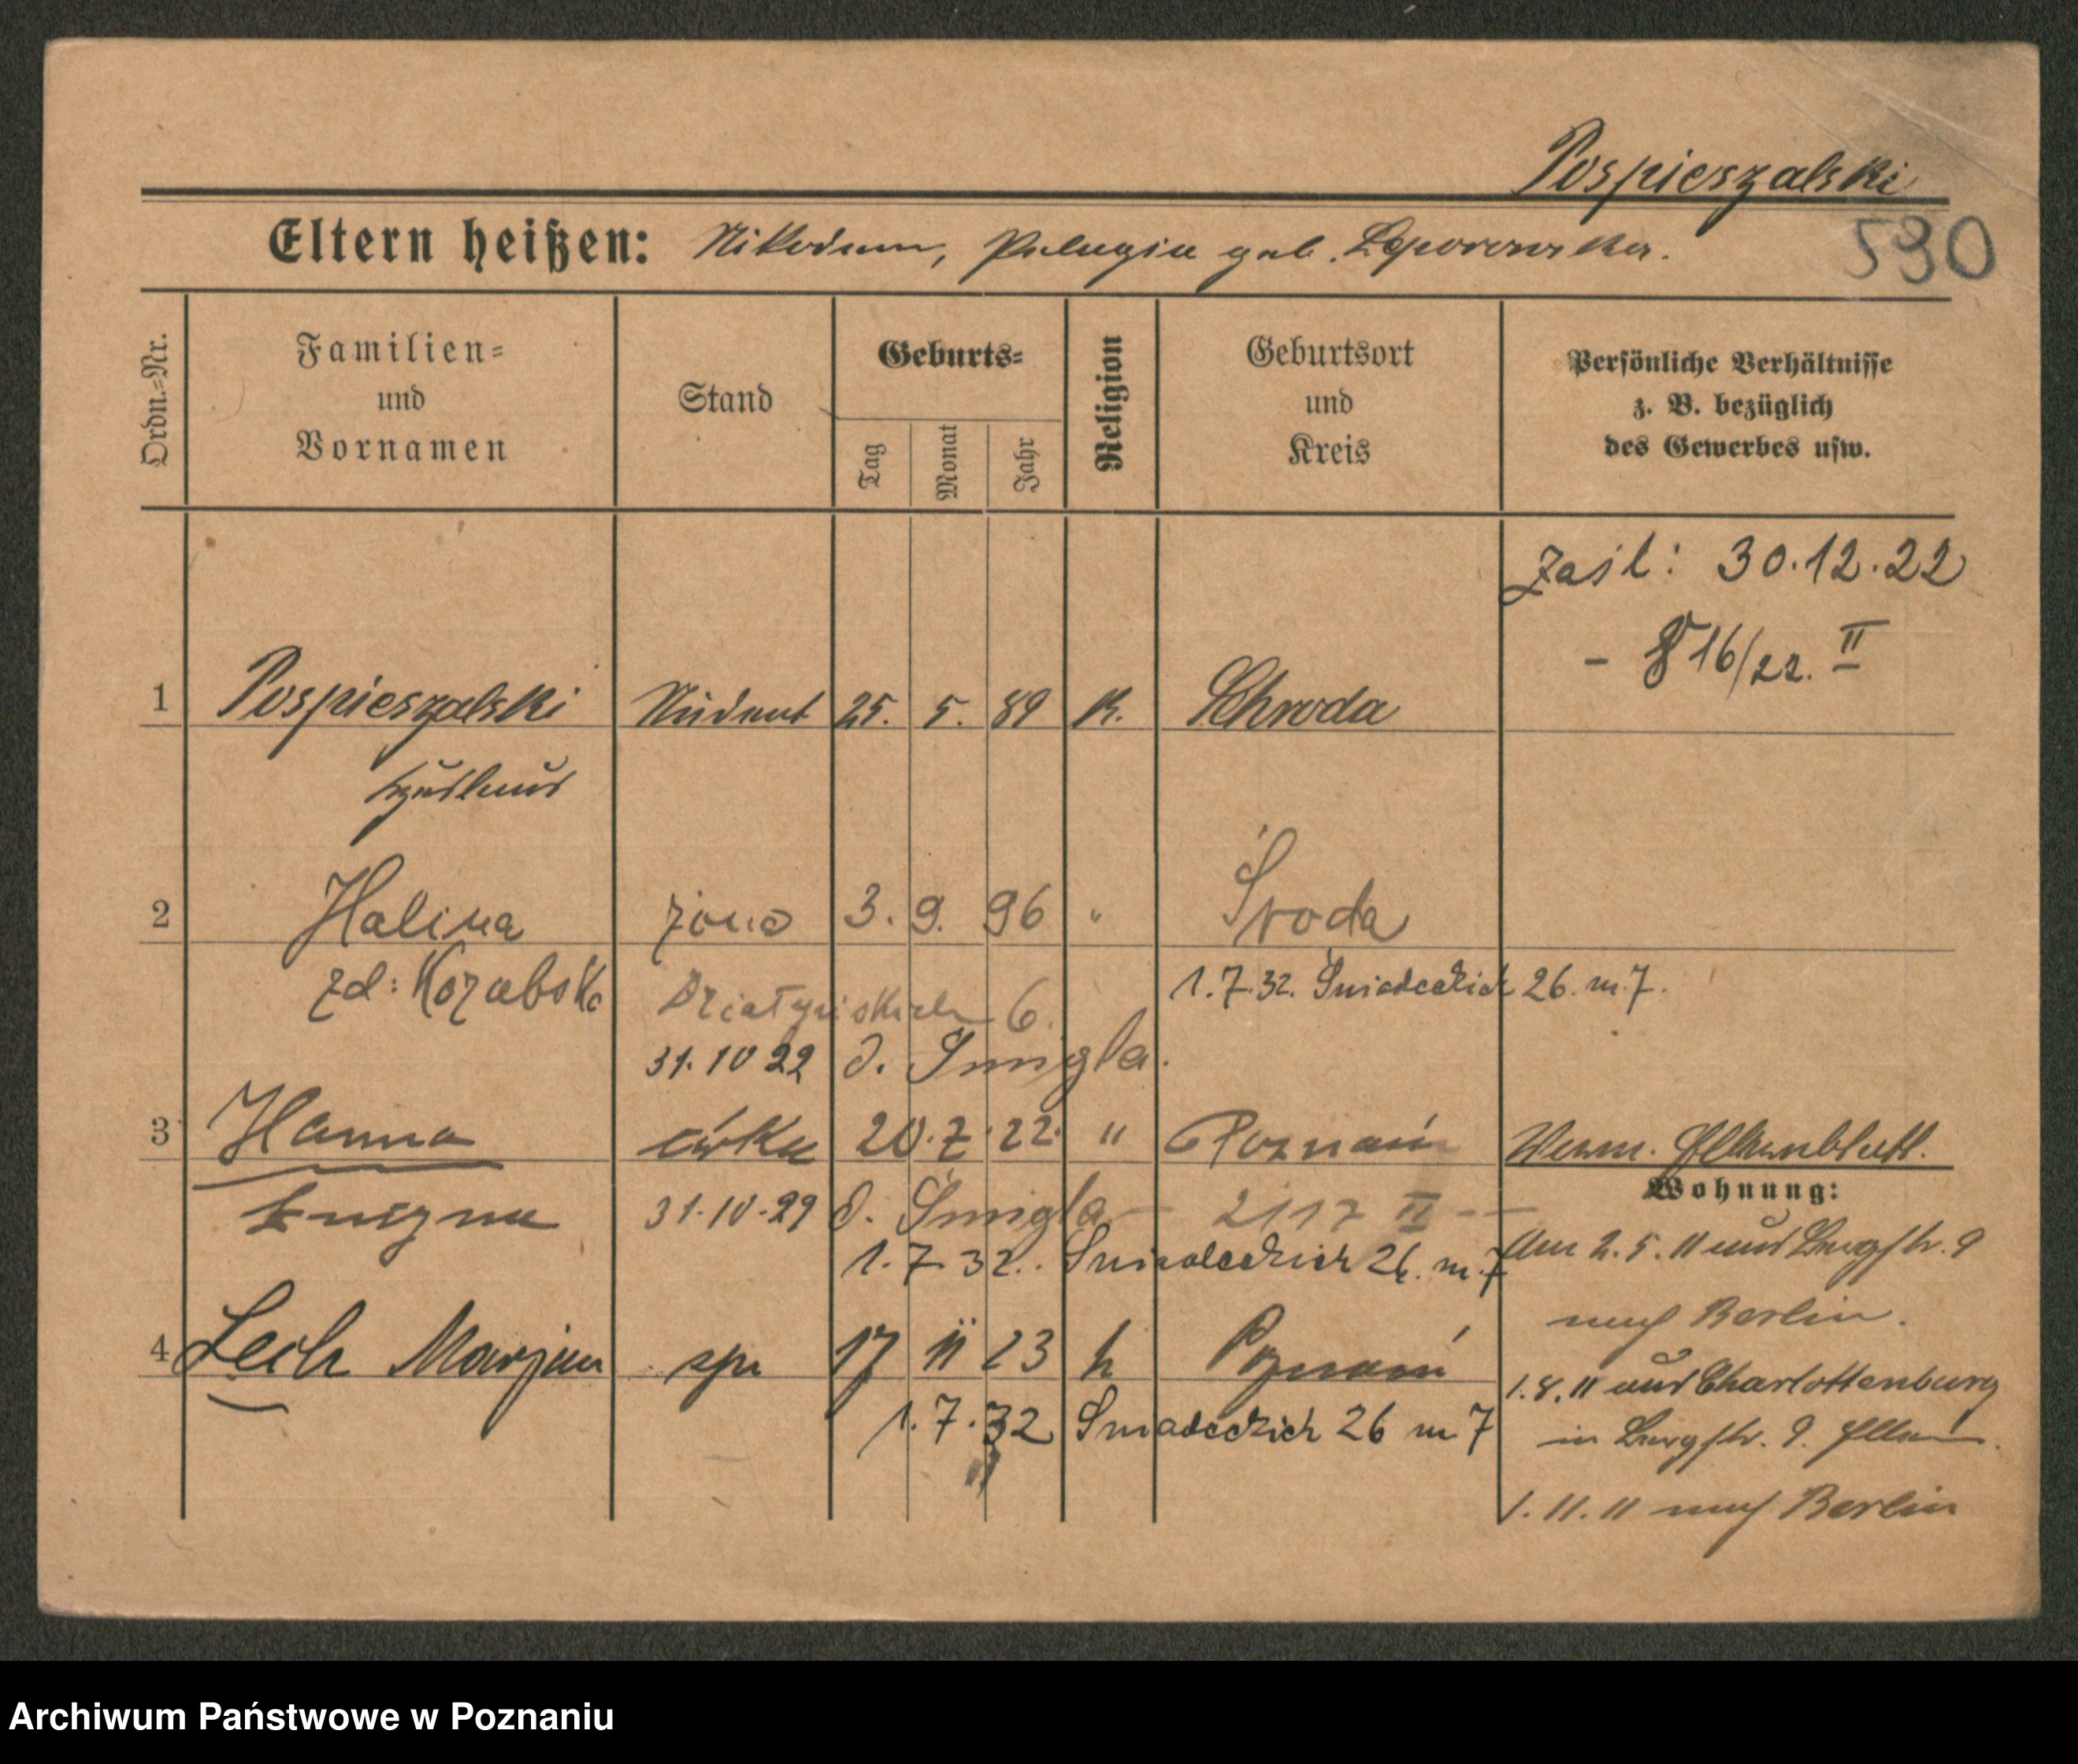 Pospieszalski
Eltern heißen: Nikodem, Pelagia geb. Leporowska.
590
Ordn.-Nr.
Familien- und Vornamen
Stand
Geburts-
Tag
Monat
Jahr
Religion
Geburtsort und Kreis
Persönliche Verhältnisse
z. B. bezüglich
des Gewerbes usw.
30.12.22
16/22. II
1 Pospieszalski Student 25. 5. 89 K. Schroda
2 Halina żona 3. 9. 96 " Środa
zd: Kozubska Działyńskich 6.
1.7.32. Śniadeckich 26. m. 7.
31.10 22 d. Śmigla.
3 Hanna córka 20. 7. 22. " Poznań
Wohnung:
31.10.22 d. Śmigla 2117 II
Am 2.5.11 aus Burgstr. 9
1.7.32. Śniadeckich 26. m. 7
nach Berlin.
4 Lech Marjan syn 17 11 23 k Poznań
1.8.11 aus Charlottenburg
1.7.32 Śniadeckich 26 m 7
in Burgstr. 9.
1.11.11 nach Berlin
Archiwum Państwowe w Poznaniu